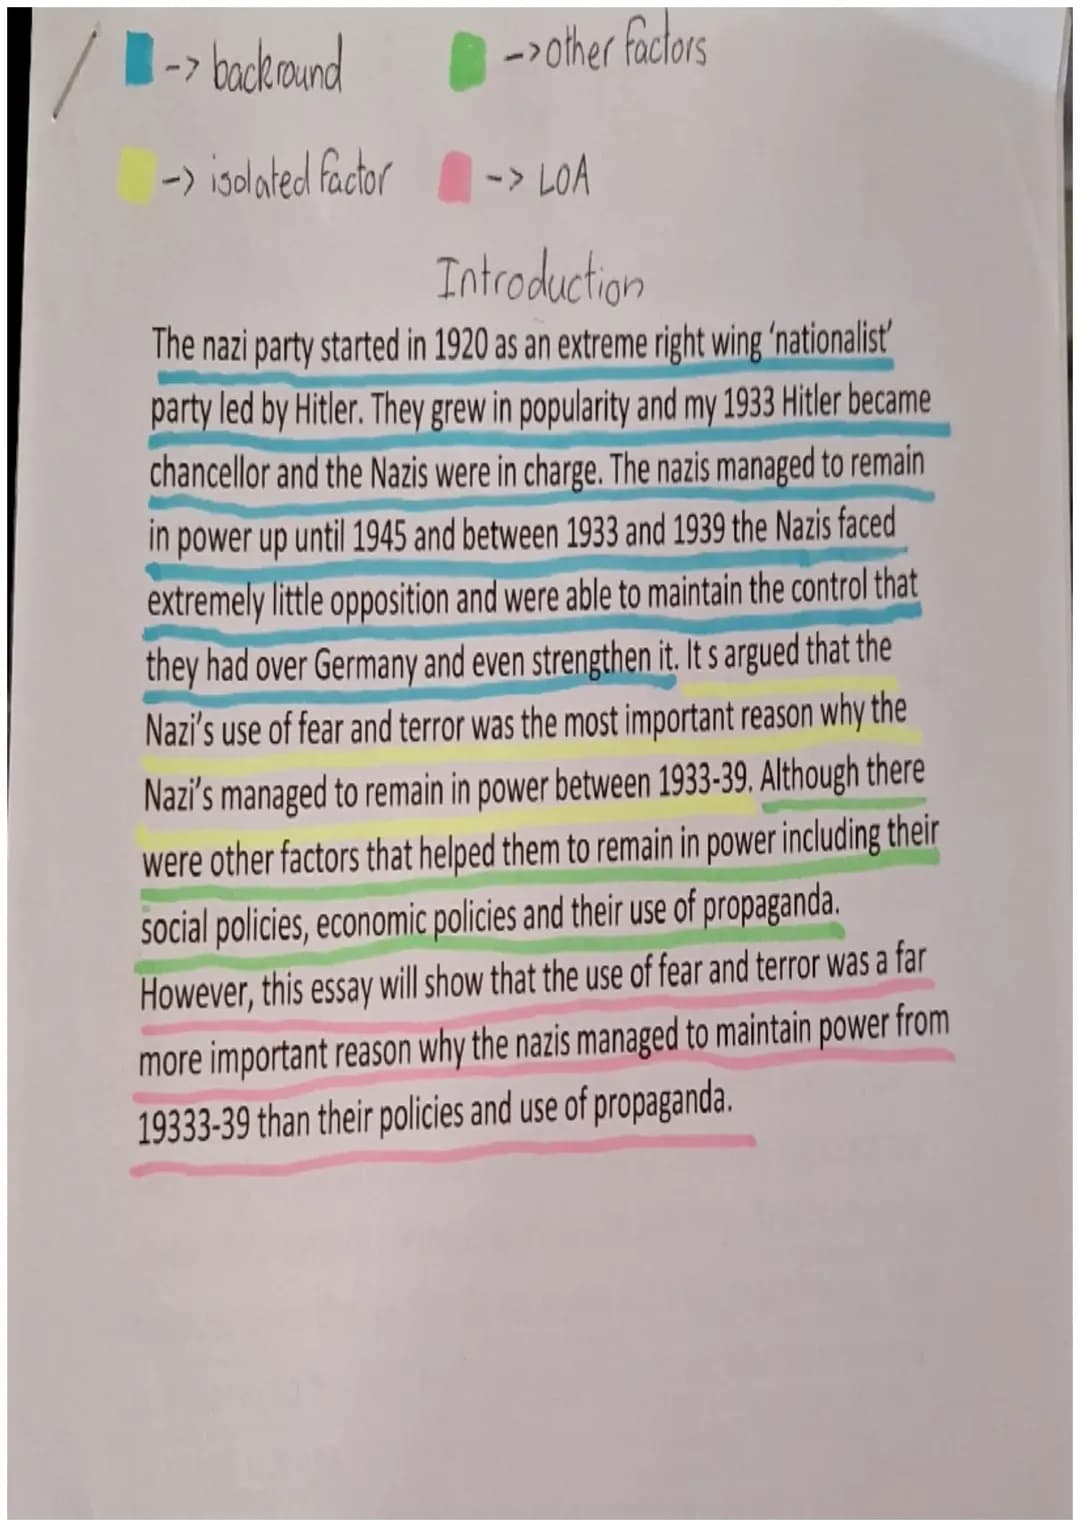 -> backround
-> other factors
-> isolated factor
-> LOA
Introduction
The nazi party started in 1920 as an extreme right wing 'nationalist'
party led by Hitler. They grew in popularity and my 1933 Hitler became
chancellor and the Nazis were in charge. The nazis managed to remain
in power up until 1945 and between 1933 and 1939 the Nazis faced
extremely little opposition and were able to maintain the control that
they had over Germany and even strengthen it. It s argued that the
Nazi's use of fear and terror was the most important reason why the
Nazi's managed to remain in power between 1933-39. Although there
were other factors that helped them to remain in power including their
social policies, economic policies and their use of propaganda.
However, this essay will show that the use of fear and terror was a far
more important reason why the nazis managed to maintain power from
19333-39 than their policies and use of propaganda.